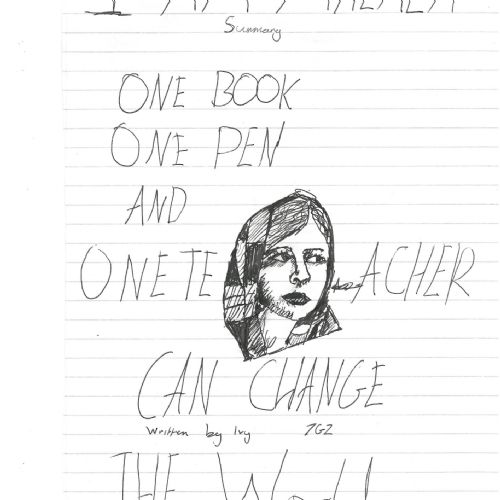 Summary
ONE BOOK
ONE PEN
AND
ONE TEACHER
CAN CHANGE
Written by Ivy 7G2
THE World